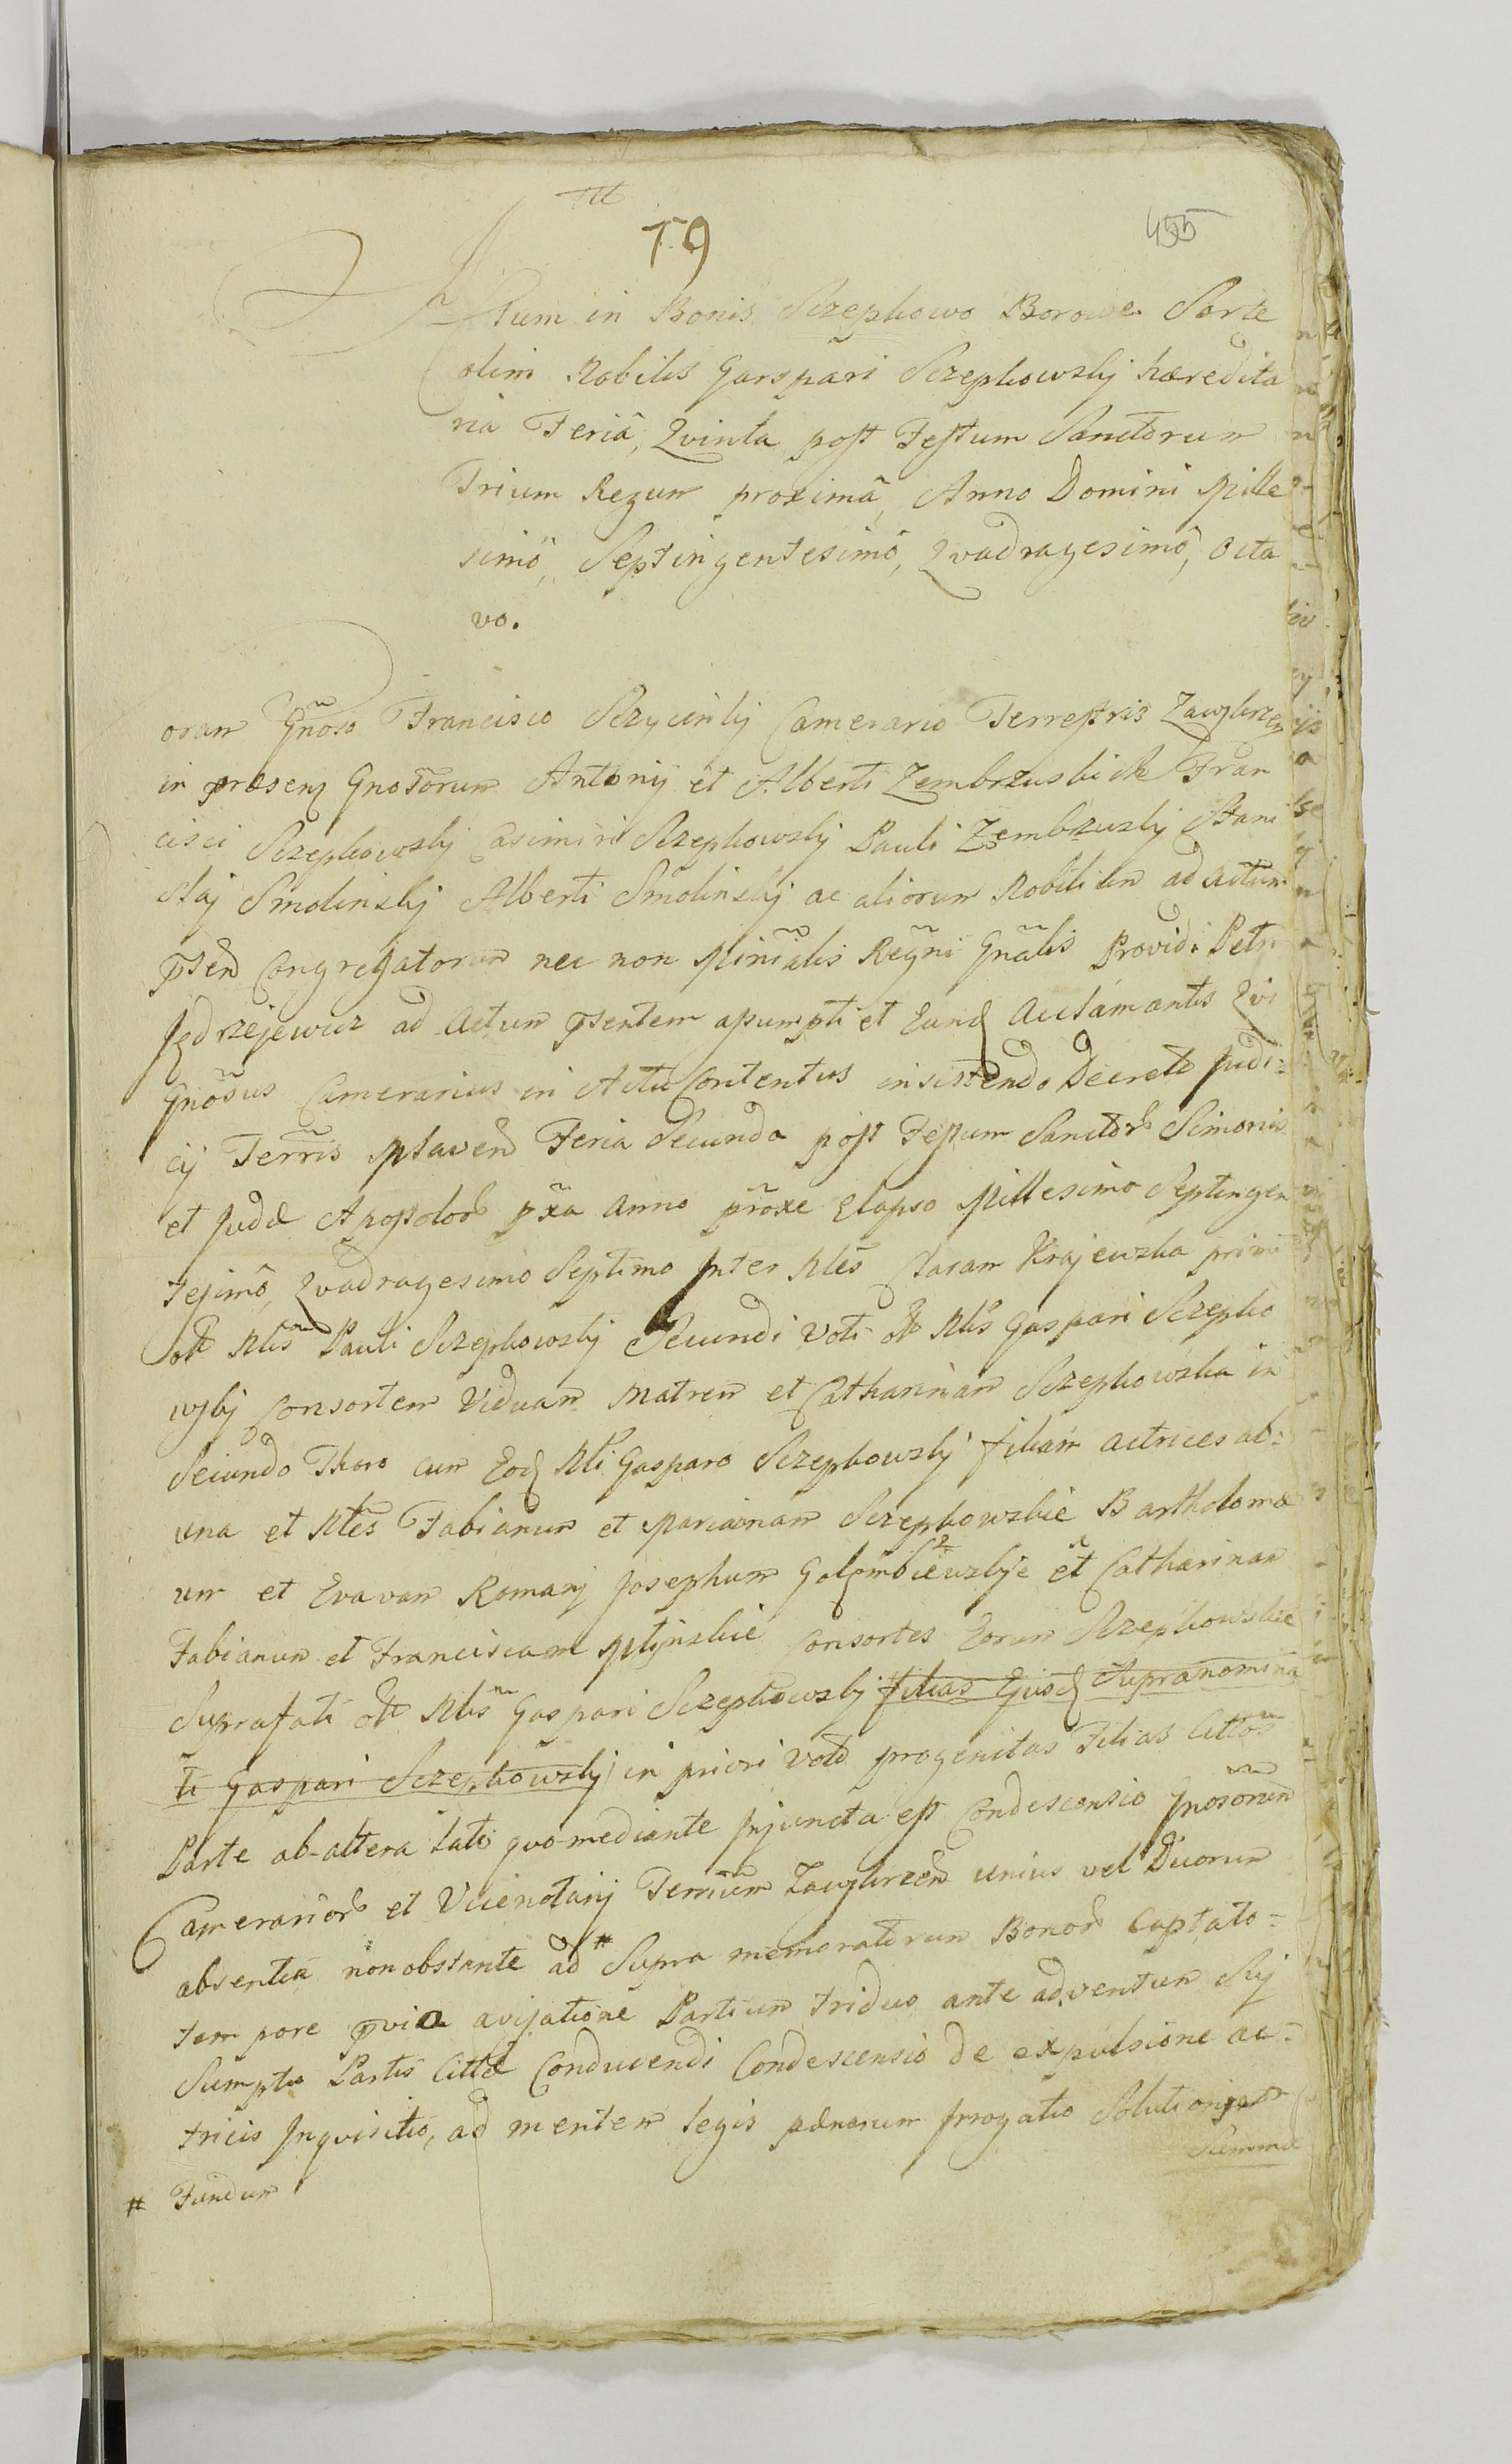 79
455
Actum in Bonis Szczepkowo Borowe Sorte
olim Nobilis Gaspari Sczepkowskj hæredita
ria Feriâ, Qvinta post Festum Sanctorum
Trium Regum proximâ, Anno Domini Mille
simô, Septingentesimô, Qvadragesimô, Octa
vo.
oram Gnõso Francisco Sczycinskj Camerario Terrestris Zawskrzen
in præsen Gnosorum Antonij et Alberti Zembrzuskich Fran
cisci Sczepkowskj Casimiri Sczepkowskj Pauli Zembrzuskj Stani
slaj Smolinskj Alberti Smolinskj ac aliorum Nobilium ad actum
psen Congregatorum nec non Minialis Regni Gnalis Providi Petri
Jędrzejewicz ad Actum psentem assumpti et Eund Acclamantis Qvi
Gnosus Camerarius in Actu Contentus insistendo Decreto Judi=
cij Terris Mlaven Feria Secunda post Festum Sanctor Simonis
et Judæ Apostolor pxa Anno proxe Elapso Millesimo Septingen
tesimô, Qvadragesimo Septimo Inter Nles Claram Krajewska primi
olt Nlis Pauli Sczepkowskj Secundi Voti olt Nlis Gaspari Sczepko
wskj Consortem Viduam Matrem et Catharinam Sczepkowska in
Secundo Thoro cum Eod Nli Gasparo Sczepkowskj filiam actrices ab=
una et Nles Fabianum et Mariannam Sczepkowskie Bartholomæ
um et Evavam Romanj Josephum Gołembiewskje et Catharinam
Fabianum et Franciscam Młynskie Consortes Eorum Sczepkowskie
Suprafati olt Nlis Gaspari Sczepkowskj filias Eiusd Supranomina
ti Gaspari Sczepkowskj in priori Voto progenitas Filias Cittos
Parte ab-altera lato qvo-mediante Injuncta est Condescensio Gnosorum
Camerarior et Vicenotarij Terrium Zawskrzen unius vel Duorum
absentia nonobstante ad # Supra memoratorum Bonor Captato=
tempore qvia avisatione Partium triduo ante adventum Sui
Sumptu Partis Cittæ Conducendi Condescensio de expulsione ac=
tricis Inqvisitio, ad mentem legis pænarum Irrogatio Solutionisqr
Summæ
# Fundum